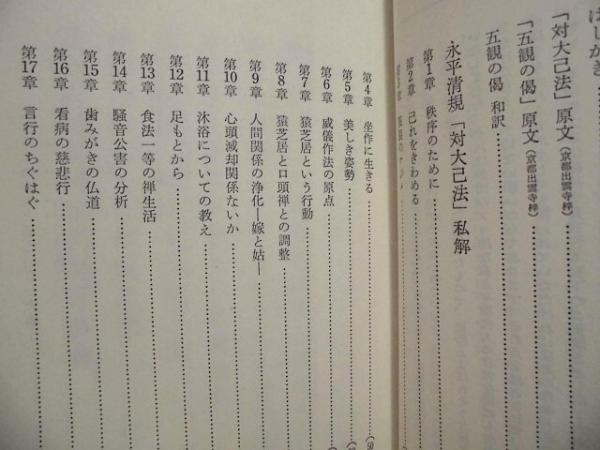 はしがき
「対大己法」原文（京都出雲寺梓）
「五観の偈」原文（京都出雲寺梓）
五観の偈 和訳
永平清規「対大己法」私解
第1章 秩序のために
第2章 己れをきわめる
第4章 坐作に生きる
第5章 美しき姿勢
第6章 威儀作法の原点
第7章 猿芝居という行動
第8章 猿芝居と口頭禅との調整
第9章 人間関係の浄化―嫁と姑―
第10章 心頭滅却関係ないか
第11章 沐浴についての教え
第12章 足もとから
第13章 食法一等の禅生活
第14章 騒音公害の分析
第15章 歯みがきの仏道
第16章 看病の慈悲行
第17章 言行のちぐはぐ